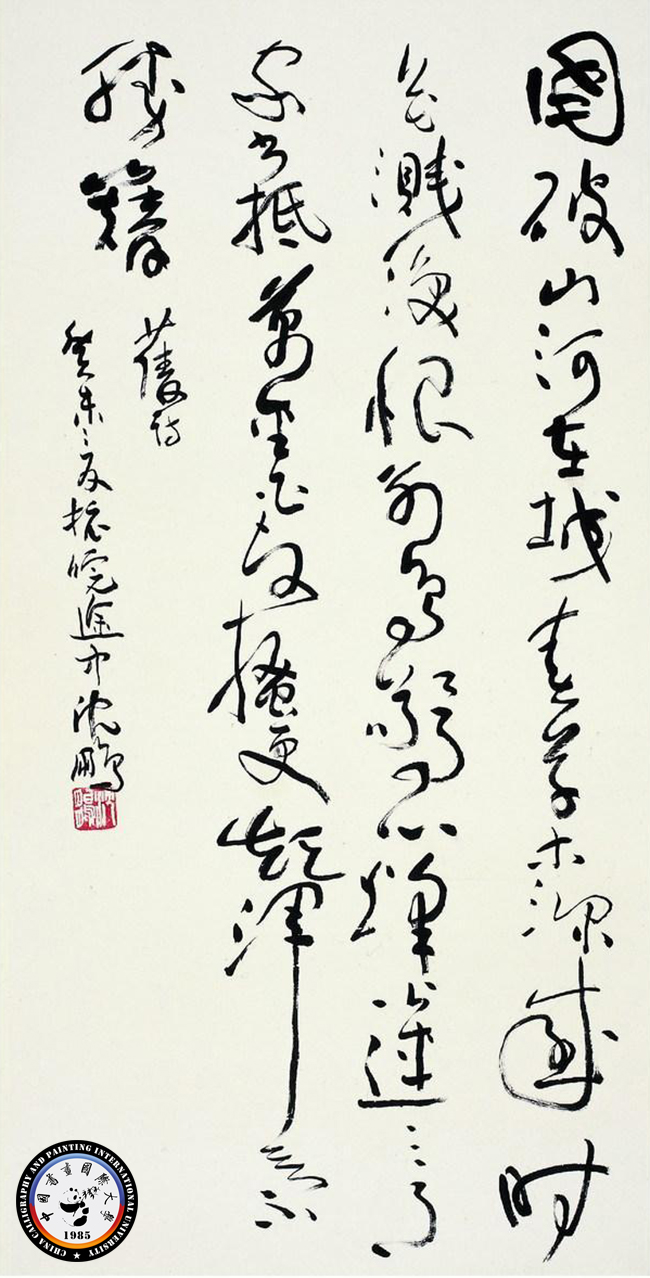 國破山河在城春草木深感时
花濺淚恨别鸟驚心烽火連三月
家书抵萬金白头搔更短渾欲不
勝簪
癸未皖途中沈鹏
沈鵬
CHINA CALLIGRAPHY AND PAINTING INTERNATIONAL UNIVERSITY
中國書畫國際大學
1985